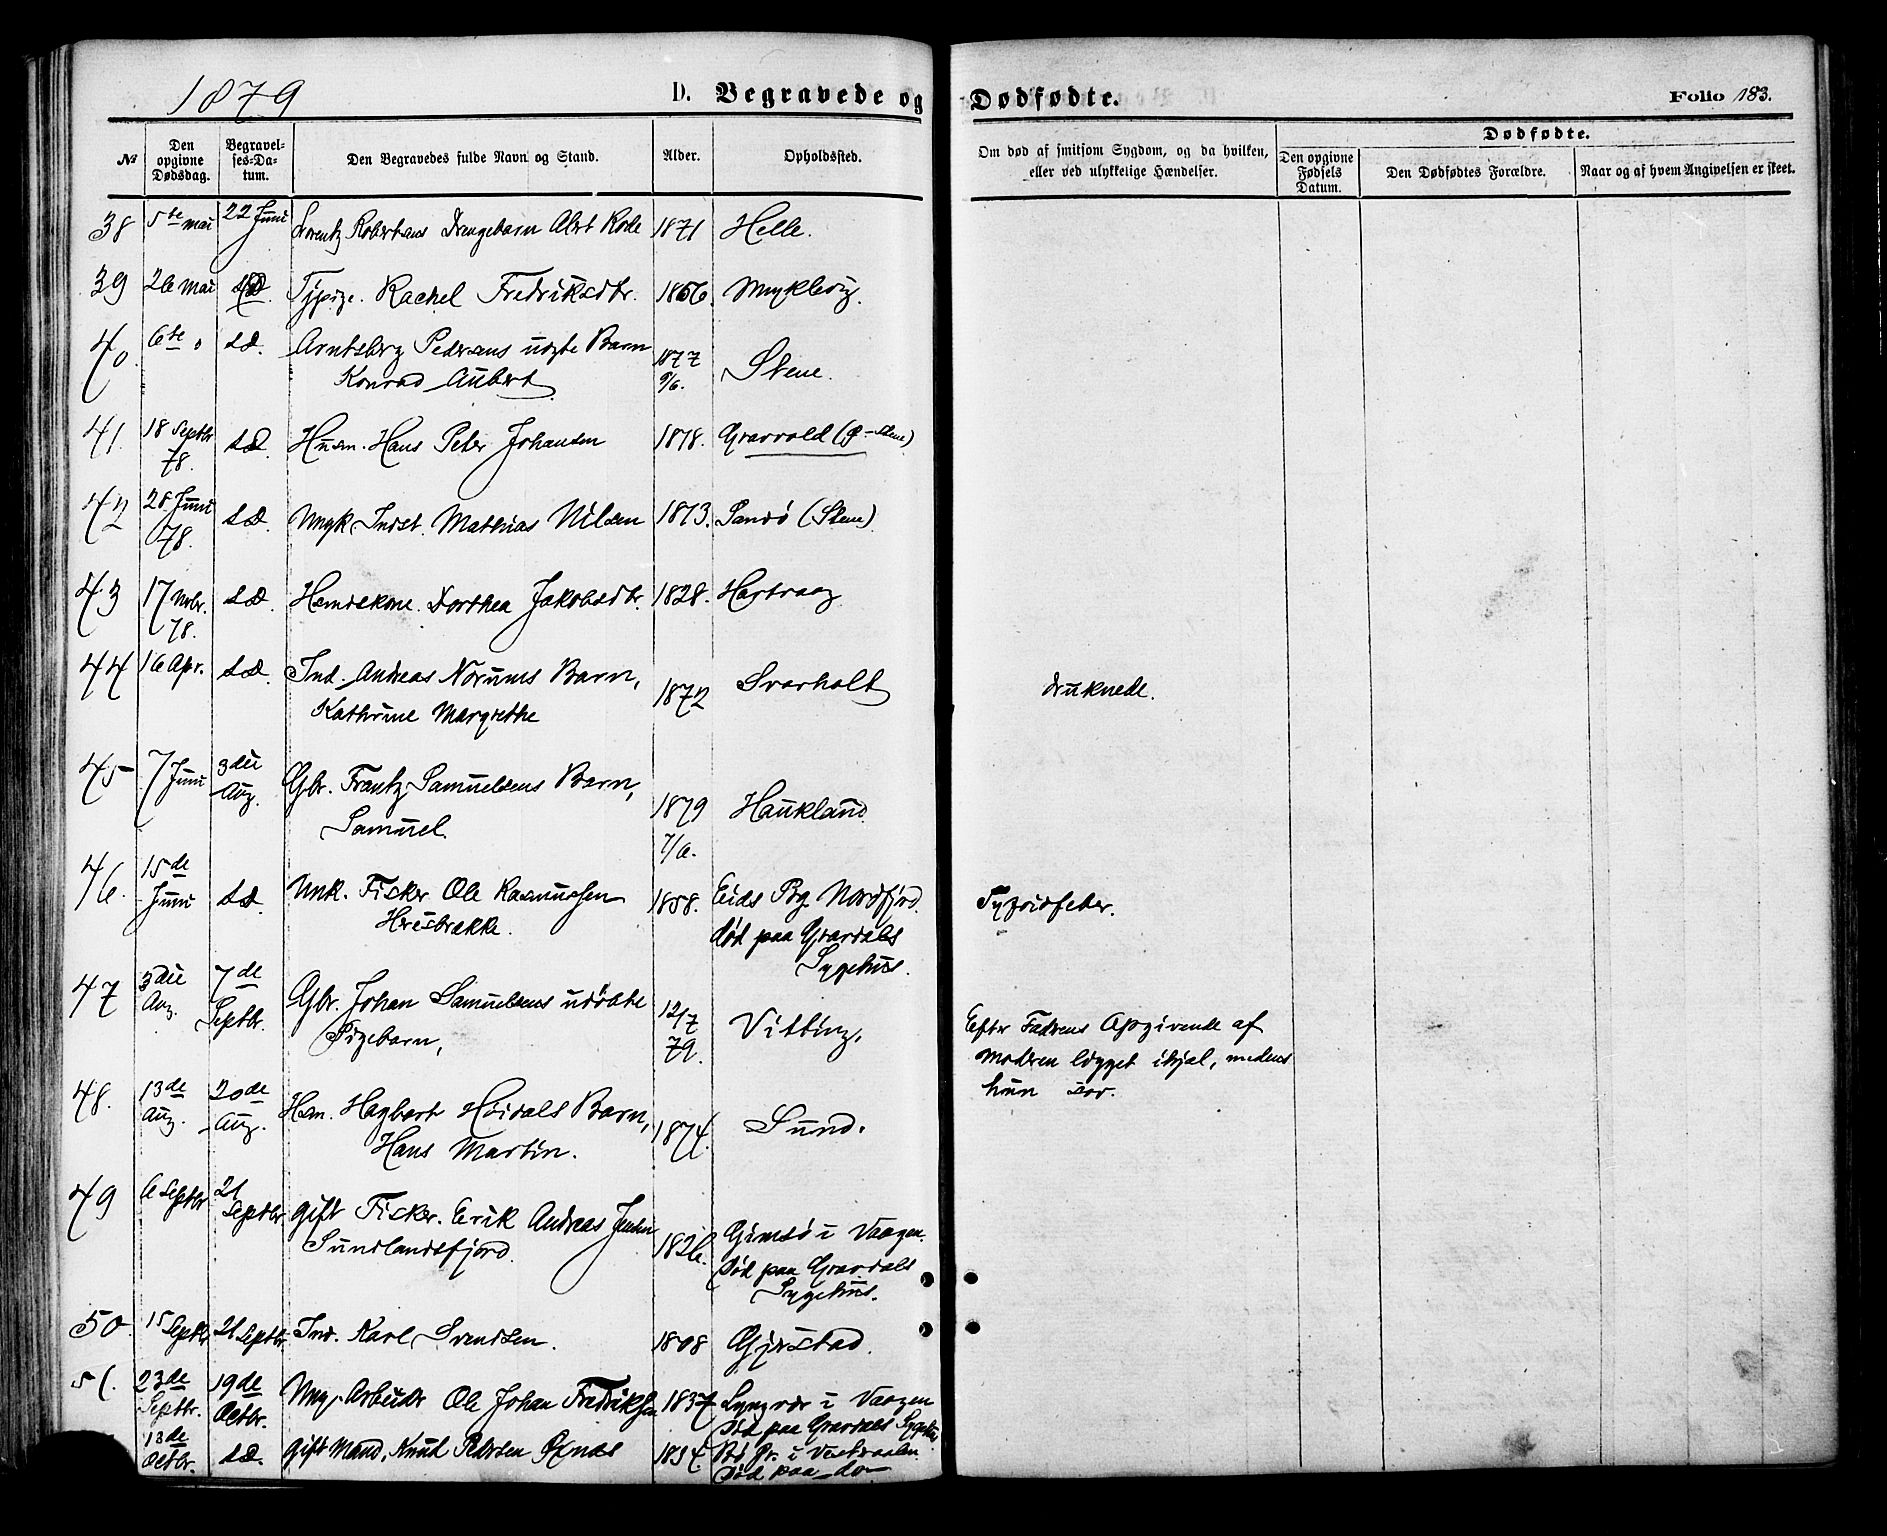 1879
D. Begravede og Dødfødte.
Folio 183.
№
Den opgivne Dødsdag.
Begravelses-Datum.
Den Begravedes fulde Navn og Stand.
Alder.
Opholdssted.
Om død af smitsom Sygdom, og da hvilken, eller ved ulykkelige Hændelser.
Dødfødte.
Den opgivne Fødsels Datum.
Den Dødfødtes Forældre.
Naar og af hvem Angivelsen er skeet.
38 5te mai 22 Juni Lorentz Robertsens Drengebarn Albt Rode 1871 Helle.
39 26 mai s.D. Rachel Fredriksdtr. 1866.
40 6te s.D. Arntsberg Pedersens uægte Barn 1877
Konrad Aubert 9/6. Stene.
41. 18 Septbr s.D. Husm. Hans Peter Johansen 1878. Gravvold (P-Stene)
78.
42 28 Juni s.D. Ungk Indst. Mathias Nilsen 1873. Sandø (Stene)
78.
43 17 Novbr. s.D. Dorthea Jakobsdtr. 1828.
78.
44 16 Apr. s.D. Ind. Andreas Norums Barn, 1872 Svarholt druknede.
Kathrine Margrethe
45 7 Juni 3die Aug. Gbr. Frantz Samuelsens Barn, 1879 Haukland
Samuel. 7/6.
46. 15de Juni s.D. Unk. Fisker Ole Rasmussen 1858. Eids Pg. Nordfjord.
død paa Gravdals
Sygehus.
47 3die Aug. 7de Septbr. Gbr. Johan Samuelsens udøbte 12/7 79. Vitting,
Pigebarn,
Efter Faderens Opgivende af
Moderen ligget ihjel, medens
hun sov.
48. 13de Aug. 20de Aug. Hsm. Hagbart Høidals Barn, 1874. Sund.
Hans Martin.
49 6 Septbr 21 Septbr gift Fisker. Erik Andreas Jensen 1826. Gimsø i Vaagen.
Sundlandsfjord død paa Gravdals
Sygehus.
50 15 Septbr 21 Septbr. Ind. Karl Svendsen. 1808 Gjerstad.
51. 23de Septbr. 19de Octbr. Arbeider Ole Johan Fredriksen 1837 Lyngvær i Vaagen
død paa Gravdals
13de Octbr. s.D. gift Mand, Knud Pedersen 1834. Bø Pr. i Vesteraalen.
død paa do